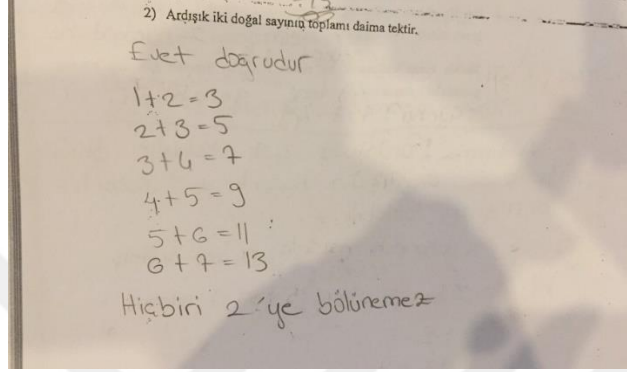 2) Ardışık iki doğal sayının toplamı daima tektir.
Evet doğrudur
1+2=3
2+3=5
3+4=7
4+5=9
5+6=11
6+7=13
Hiçbiri 2'ye bölünemez